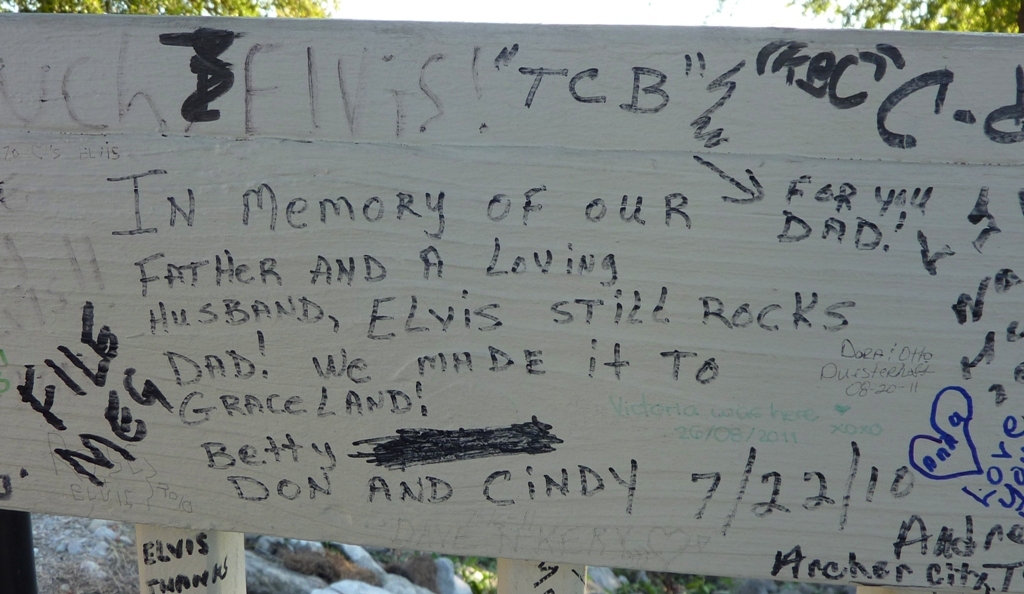 ELVis! "TCB" "TBC" C.
IN Memory OF OUR
FOR YOU
DAD!
FATHER AND A Loving
HUSBAND, ELvis STiLL ROCKS
DAD! We MADE it TO
GRACELAND!
Betty
DON AND CiNDY 7/22/10
Dora i Otto
08-20-11
Victoria was here ♥
26/08/2011 xoxo
FILB
MEG
ELVIS
Andre
Archer City, T
ELVIS
THANKS